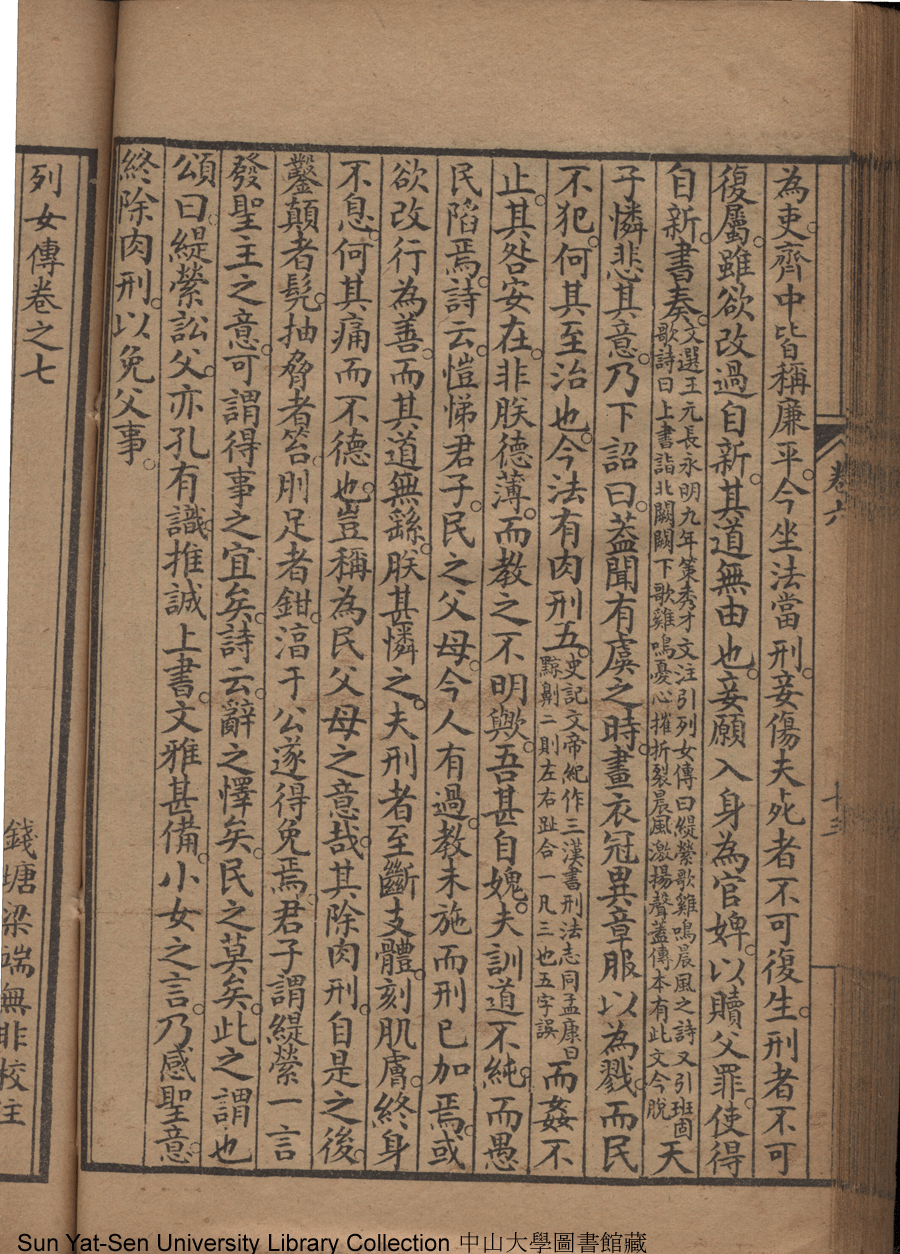 卷六
為吏。齊中皆稱廉平。今坐法當刑。妾傷夫死者不可復生。刑者不可
復屬。雖欲改過自新。其道無由也。妾願入身為官婢。以贖父罪。使得
自新。書奏。文選王元長永明九年策秀才文注引列女傳曰緹縈歌雞鳴晨風之詩又引班固歌詩曰上書詣北闕闕下歌雞鳴憂心摧折裂晨風激揚聲蓋傳本有此文今脫天
子憐悲其意。乃下詔曰。葢聞有虞之時。畫衣冠異章服以為戮。而民
不犯。何其至治也。今法有肉刑五。史記文帝紀作三漢書刑法志同孟康曰黥劓二則左右趾合一凡三也五字誤而姦不
止。其咎安在。非朕德薄。而教之不明歟。吾甚自媿。夫訓道不純。而愚
民陷焉。詩云。愷悌君子。民之父母。今人有過。教未施而刑已加焉。或
欲改行為善。而其道無繇。朕甚憐之。夫刑者至斷支體。刻肌膚。終身
不息。何其痛而不德也。豈稱為民父母之意哉。其除肉刑。自是之後。
鑿顛者髡。抽脅者笞。刖足者鉗。淳于公遂得免焉。君子謂緹縈一言
發聖主之意。可謂得事之宜矣。詩云。辭之懌矣。民之莫矣。此之謂也
頌曰。緹縈訟父。亦孔有識。推誠上書。文雅甚備。小女之言。乃感聖意。
終除肉刑。以免父事。
列女傳卷之七
錢塘梁端無非校注
Sun Yat-Sen University Library Collection 中山大學圖書館藏